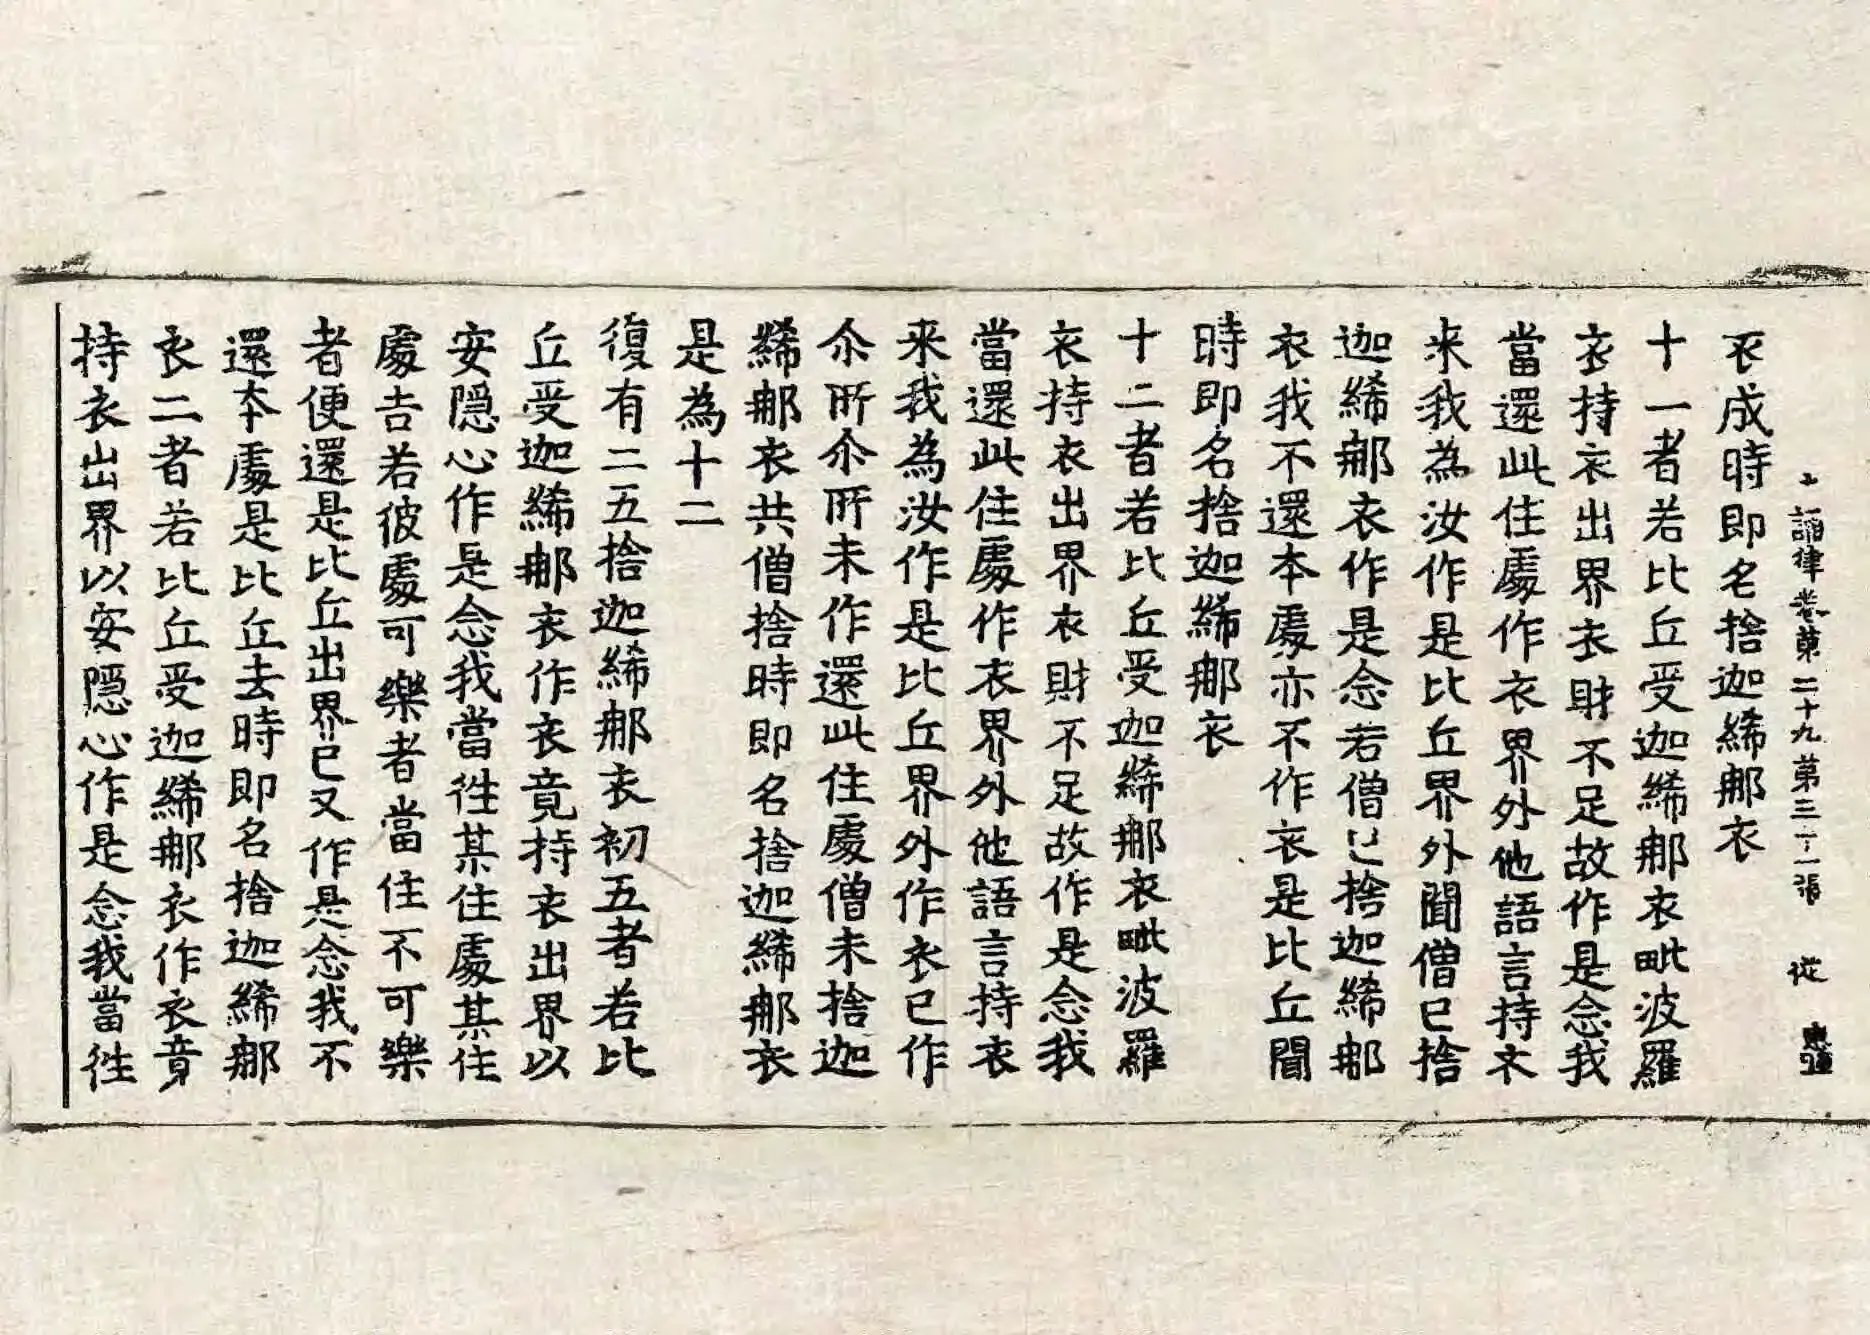 十誦律卷第二十九第三十一張 從
衣成時即名捨迦絺那衣
十一者若比丘受迦絺那衣毗波羅
衣持衣出界衣財不足故作是念我
當還此住處作衣界外他語言持衣
来我為汝作是比丘界外聞僧已捨
迦絺那衣作是念若僧已捨迦絺那
衣我不還本處亦不作衣是比丘聞
時即名捨迦絺那衣
十二者若比丘受迦絺那衣毗波羅
衣持衣出界衣財不足故作是念我
當還此住處作衣界外他語言持衣
来我為汝作是比丘界外作衣已作
尒所尒所未作還此住處僧未捨迦
絺那衣共僧捨時即名捨迦絺那衣
是為十二
復有二五捨迦絺那衣初五者若比
丘受迦絺那衣作衣竟持衣出界以
安隱心作是念我當徃某住處某住
處吉若彼處可樂者當住不可樂
者便還是比丘出界已又作是念我不
還本處是比丘去時即名捨迦絺那
衣二者若比丘受迦絺那衣作衣竟
持衣出界以安隱心作是念我當徃